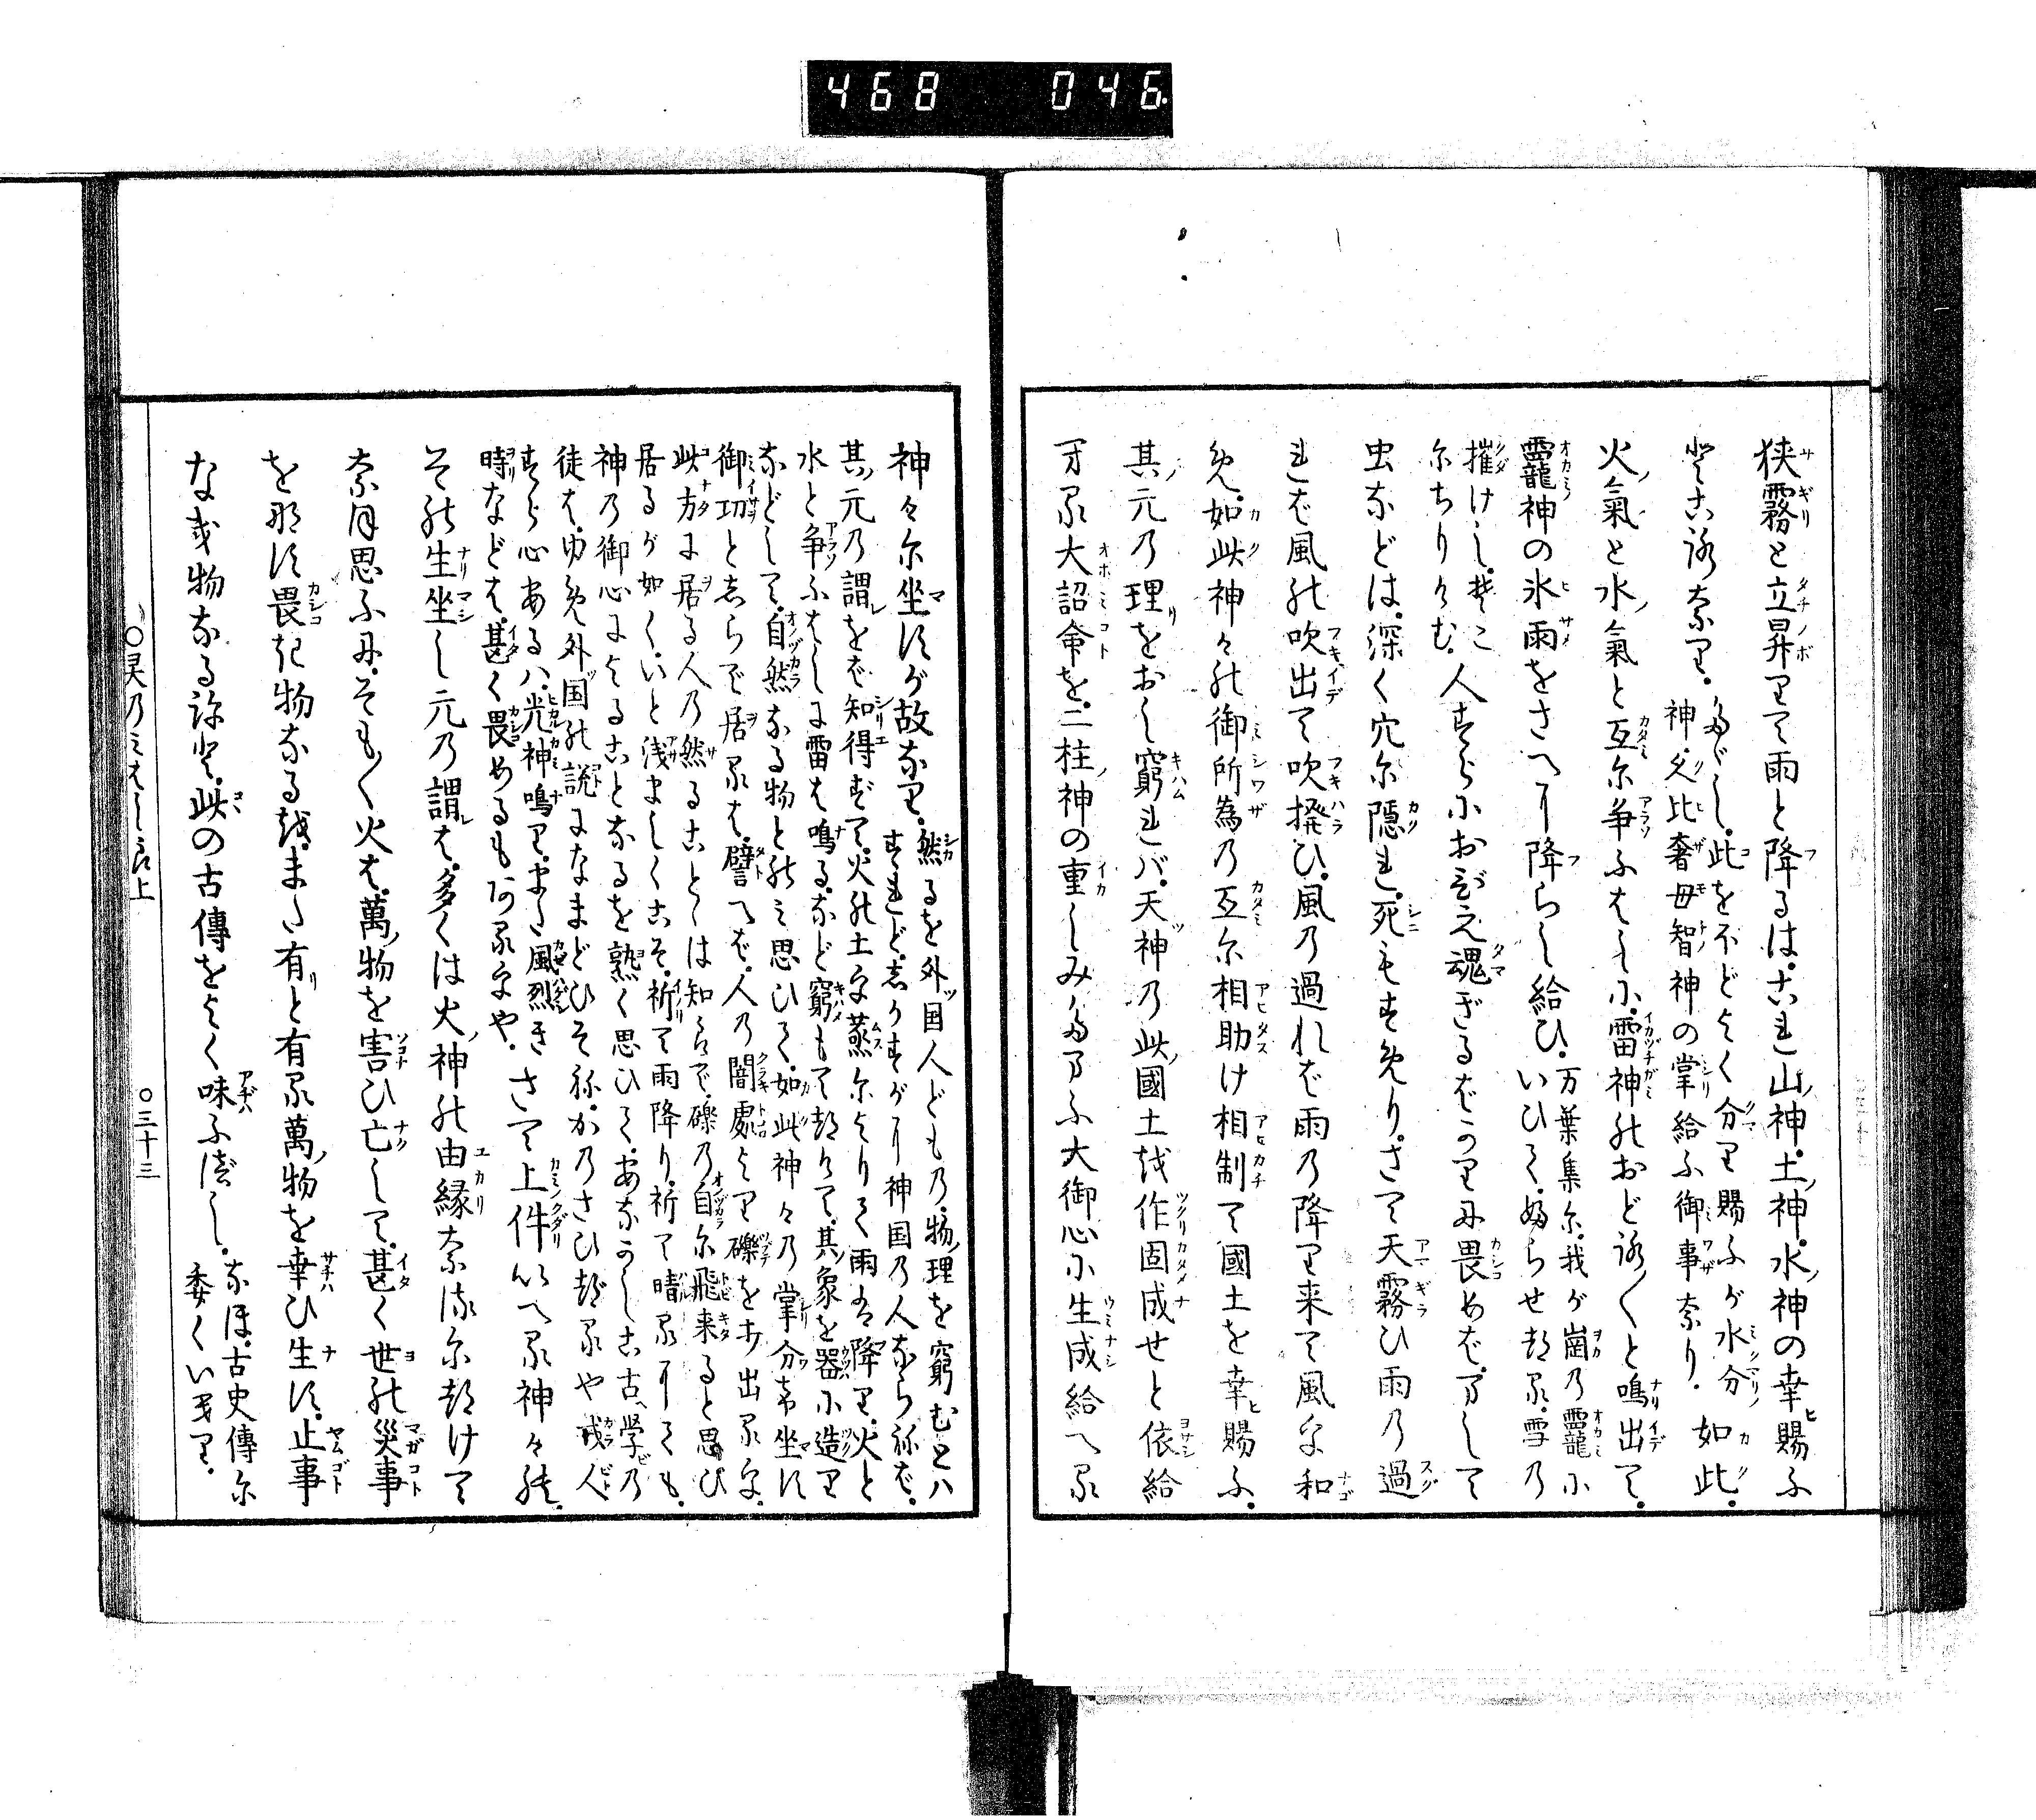 468 046
狭霧と立昇りて雨と降るは。これ山神。土神。水神の幸賜ふ
ところなり。
なべし。此をほどよく分り賜ふが水分
神。久比奢母智神の掌給ふ御事なり。
如此。
火氣と水氣と互に争ふはしに。雷神のおどろ〱と鳴出て。
龗神の氷雨をさへに降らし給ひ。
万葉集に。我が崗の龗に
いひて。ふらせたる。雪の
摧けし。そこ
にちりけむ。
人すらにおびえ魂ぎるばかりに畏めば。まして
虫などは。深く穴に隠れ。死もすめり。さて天霧ひ雨の過
れば風の吹出て吹撥ひ。風の過れば雨の降り来て風を和
め。如此神々の御所為の互に相助け相制て國土を幸賜ふ。
其元の理をおし窮れバ。天神の此國土を作固成せと依給
まる大詔命を。二柱神の重しみたまふ大御心に生成給へる
神々に坐すが故なり。
然るを外国人どもの。物理を窮むとハ
すれど。しかすがに神国の人ならねば。
其元の謂をば知得ずて。火の土を蒸によりて雨は降り。火と
水と争ふはしに雷は鳴る。など窮もてたけて。其象を器に造り
などして。自然なる物とのみ思ひて。如此神々の掌分坐す
御功としらで居るは。譬へば。人の闇處より礫を打出るを。
此方に居る人の然ることゝは知らで。礫の自に飛来ると思ひ
居るが如く。いと浅ましくこそ。祈て雨降り。祈て晴るにても。
神の御心によることなるを熟く思ひて。あなかしこ古学の
徒は。ゆめ外国の説になまどひそね。かのさひづるや戎人
すら心あるハ。光神鳴り。また風烈き
時などは。甚く畏めるもあるをや。
さて上件いへる神々の。
その生坐し元の謂は。多くは火神の由縁なるにたけて
なほ思ふに。そも〱火は。萬物を害ひ亡して。甚く世の災事
を那す畏き物なるを。また有と有る萬物を幸ひ生す。止事
なき物なる故を。此の古傳をよく味ふべし。
なほ。古史傳に
委くいへり。
○霊乃みはしら上
○三十三